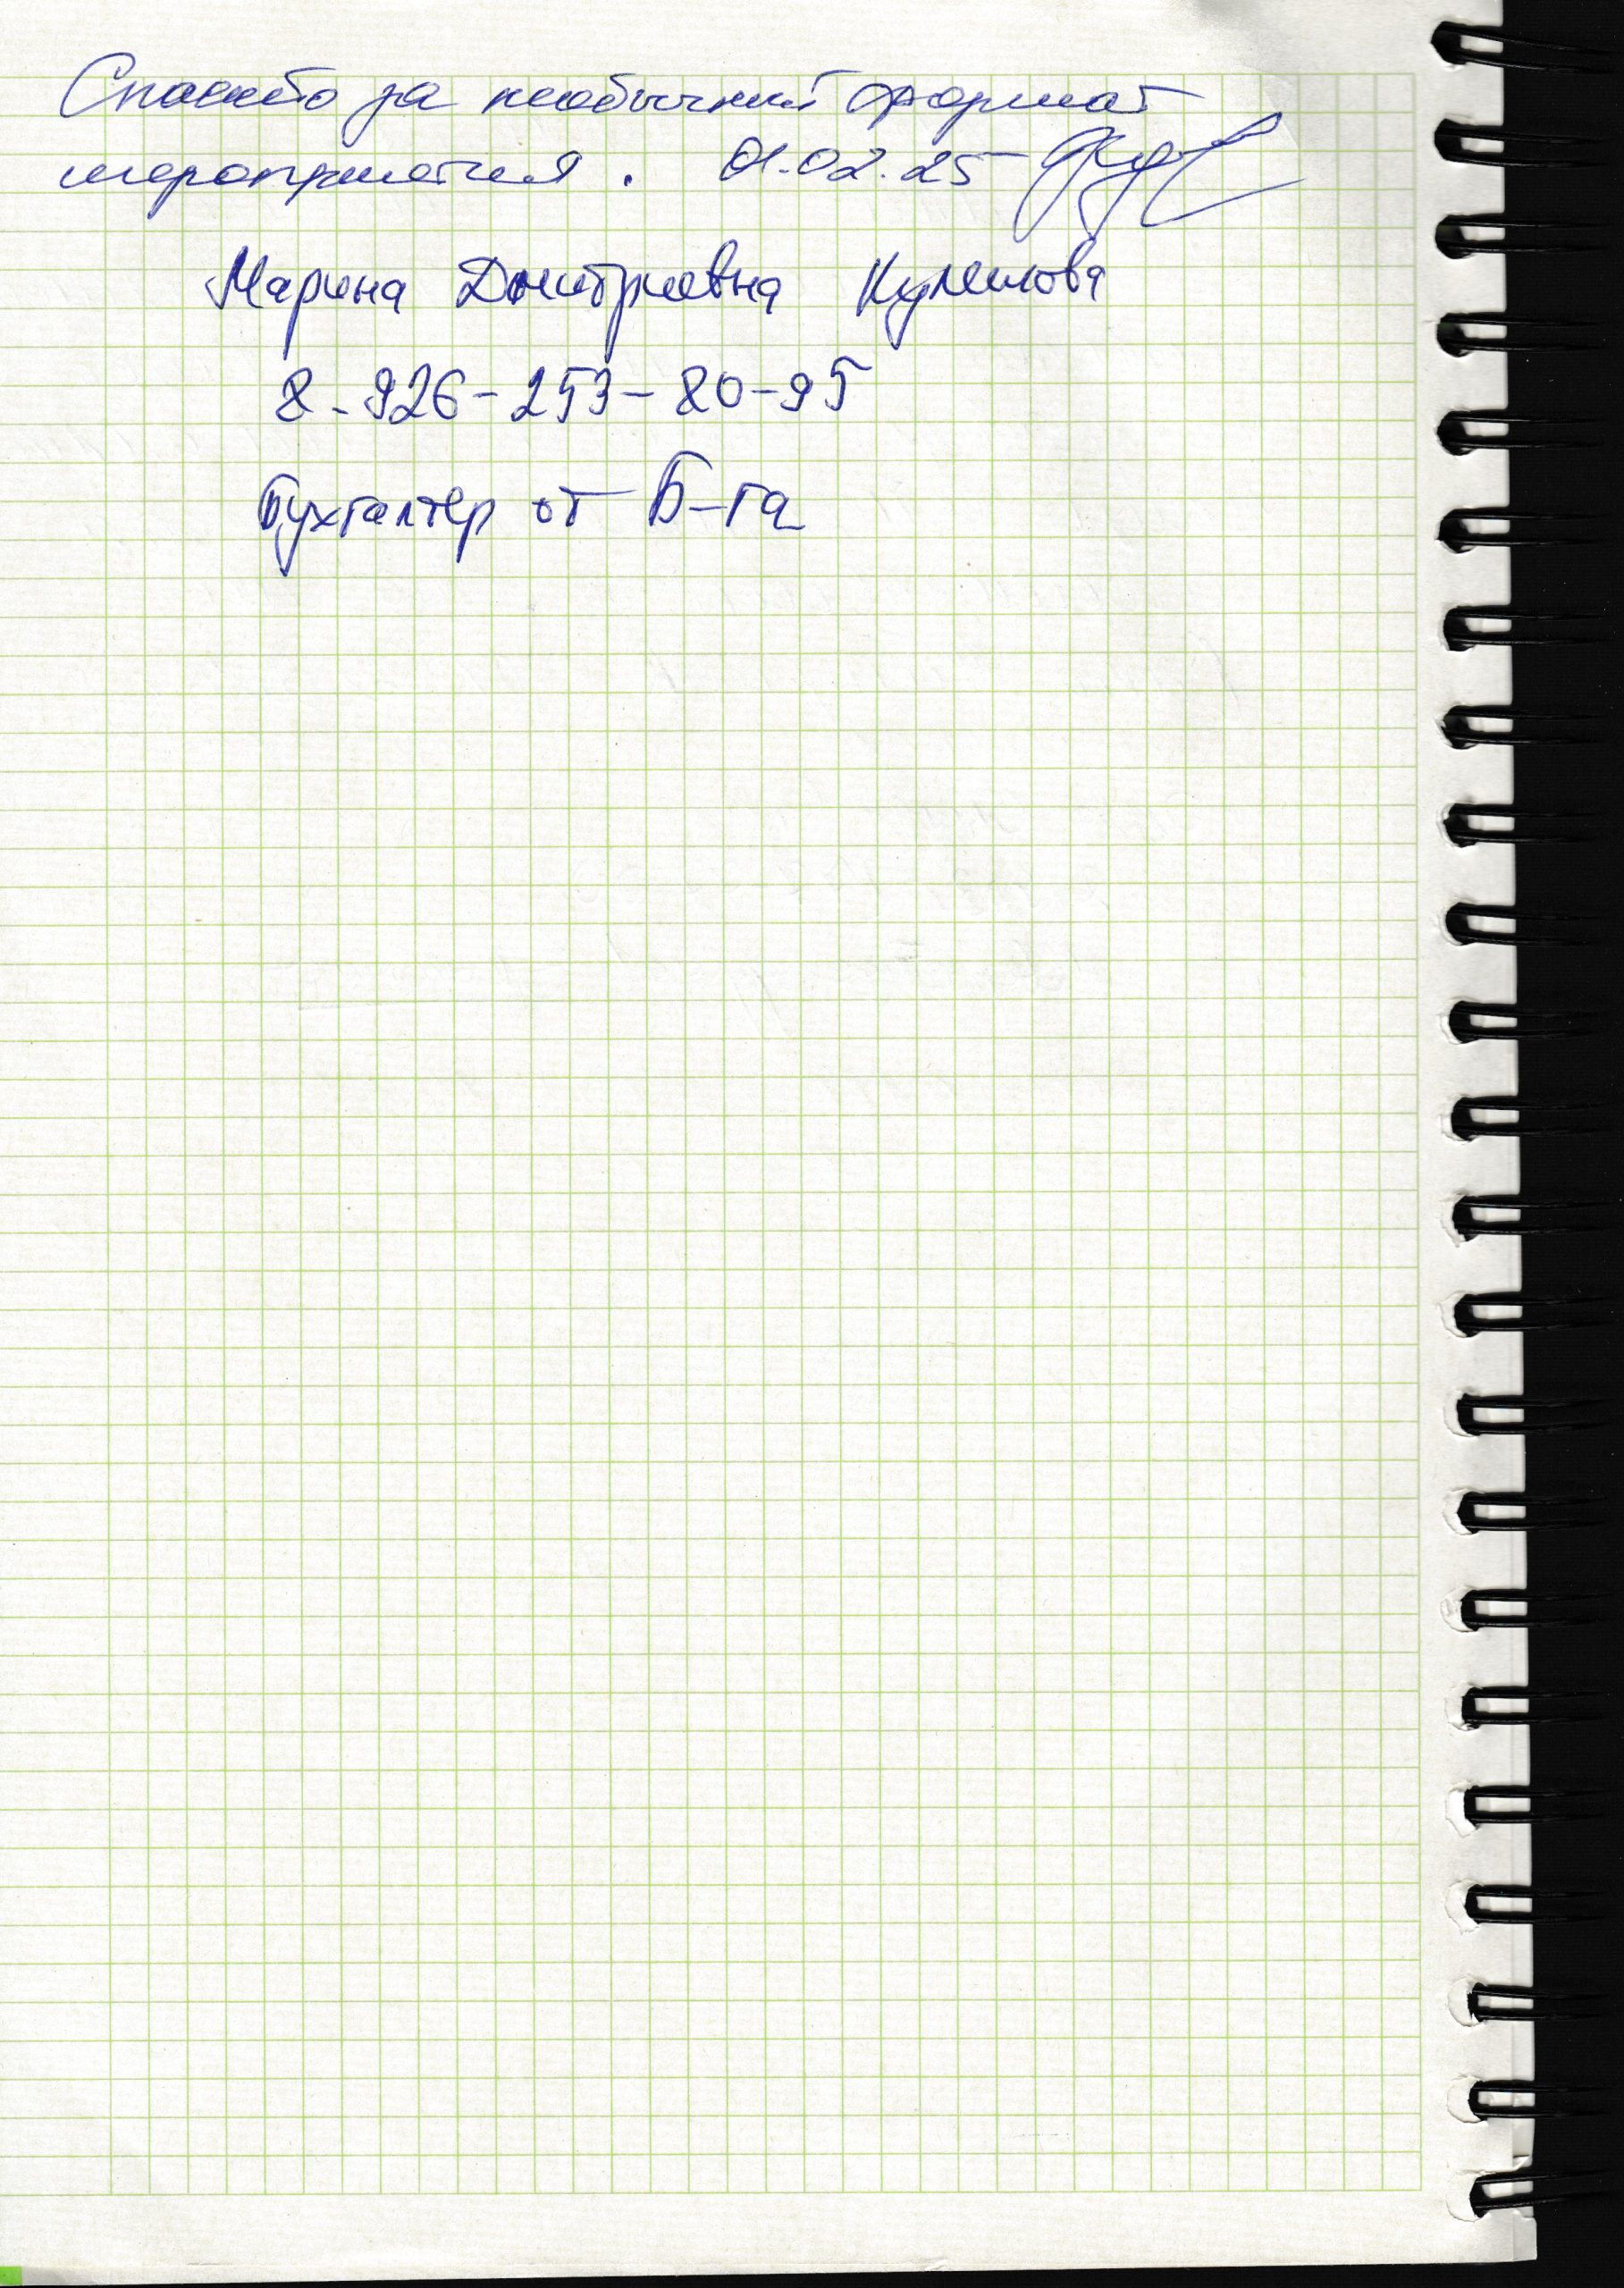 Спасибо за необычный формат
мероприятия. 01.02.25
Марина Дмитриевна
8-926-253-80-95
Бухгалтер от Б-га